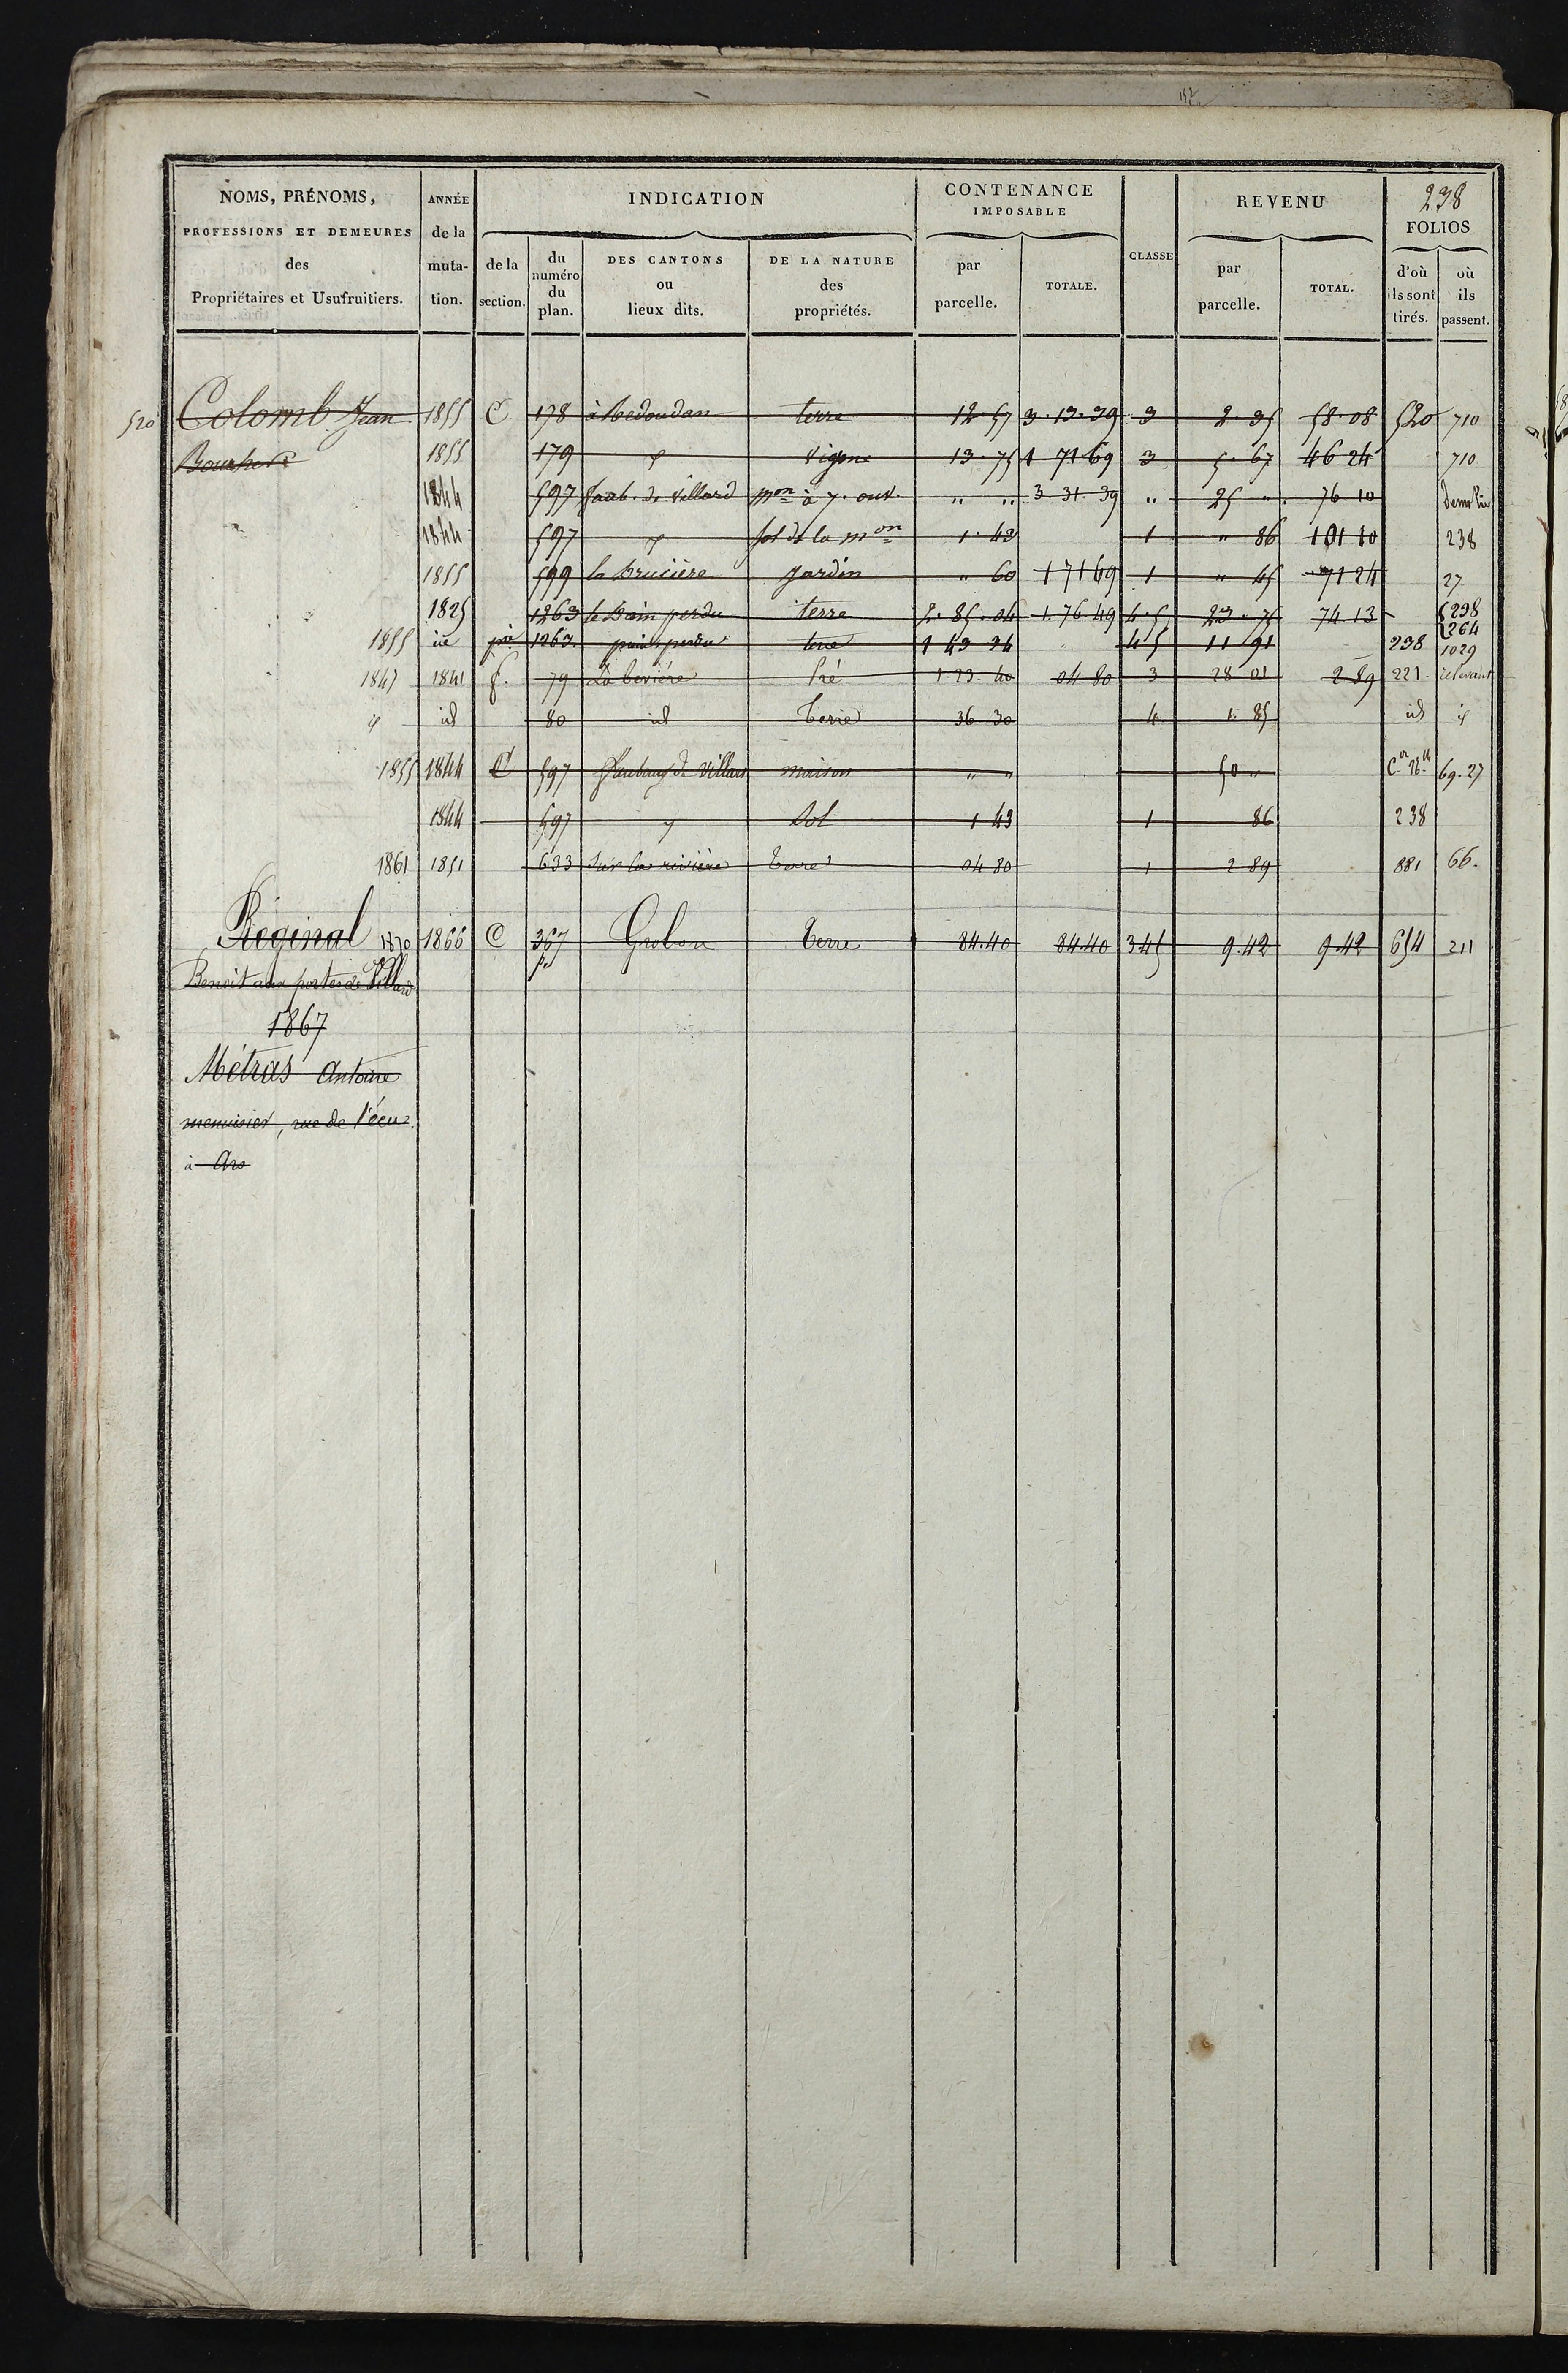 NOMS, PRÉNOMS, PROFESSIONS ET DEMEURES des Propriétaires et Usufruitiers.
ANNÉE de la muta- tion.
INDICATION
de la section.
du numéro du plan.
DES CANTONS ou lieux dits.
DE LA NATURE des propriétés.
CONTENANCE IMPOSABLE
par parcelle.
TOTALE.
CLASSE
REVENU
par parcelle.
TOTAL.
238
FOLIOS
d'où ils sont tirés.
où ils passent.
520 Colomb Jean 1855 C 178 terre 12.57 3.13.39 3 2.35 58.08 520 710
1855 179 vigne 13.75 1 71 69 3 5.67 46 24 710
1844 597 faub. de Villard mon à 7. ouv. " " 3 31 39 " 25 " 76 10
1844 597 sol de la mon 1.43 1 " 86 101 10 238
1855 599 la brucière jardin " 60 1 71 69 1 " 45 71 24 27
1825 1263 le Bain perdu terre 2.85.04 1.76.49 4.5 23.75 74 13 298 264
1855 1263 perdu terre 1 43 24 4 5 11 91 238 1029
1847 1841 f. 79 La beviére Pré 1.23.40 04 80 3 28 01 2 89 221
id 80 id Terre 36 30 4 1.85 id
1855 1844 C 597 Faubourg de Villars maison " " 50 " 69.27
1844 597 Sol 1 43 1 86 238
1861 1851 633 Sur la rivière Terre 04 80 1 2 89 881 66.
Réginal 1870 1866 C 367 p. Grobon Terre 84.40 84.40 3 4 5 9.42 9.42 654 211
Benoit aux portes de Villard
1867
Métras Antoine
menuisier, rue de l'écu
à Ars